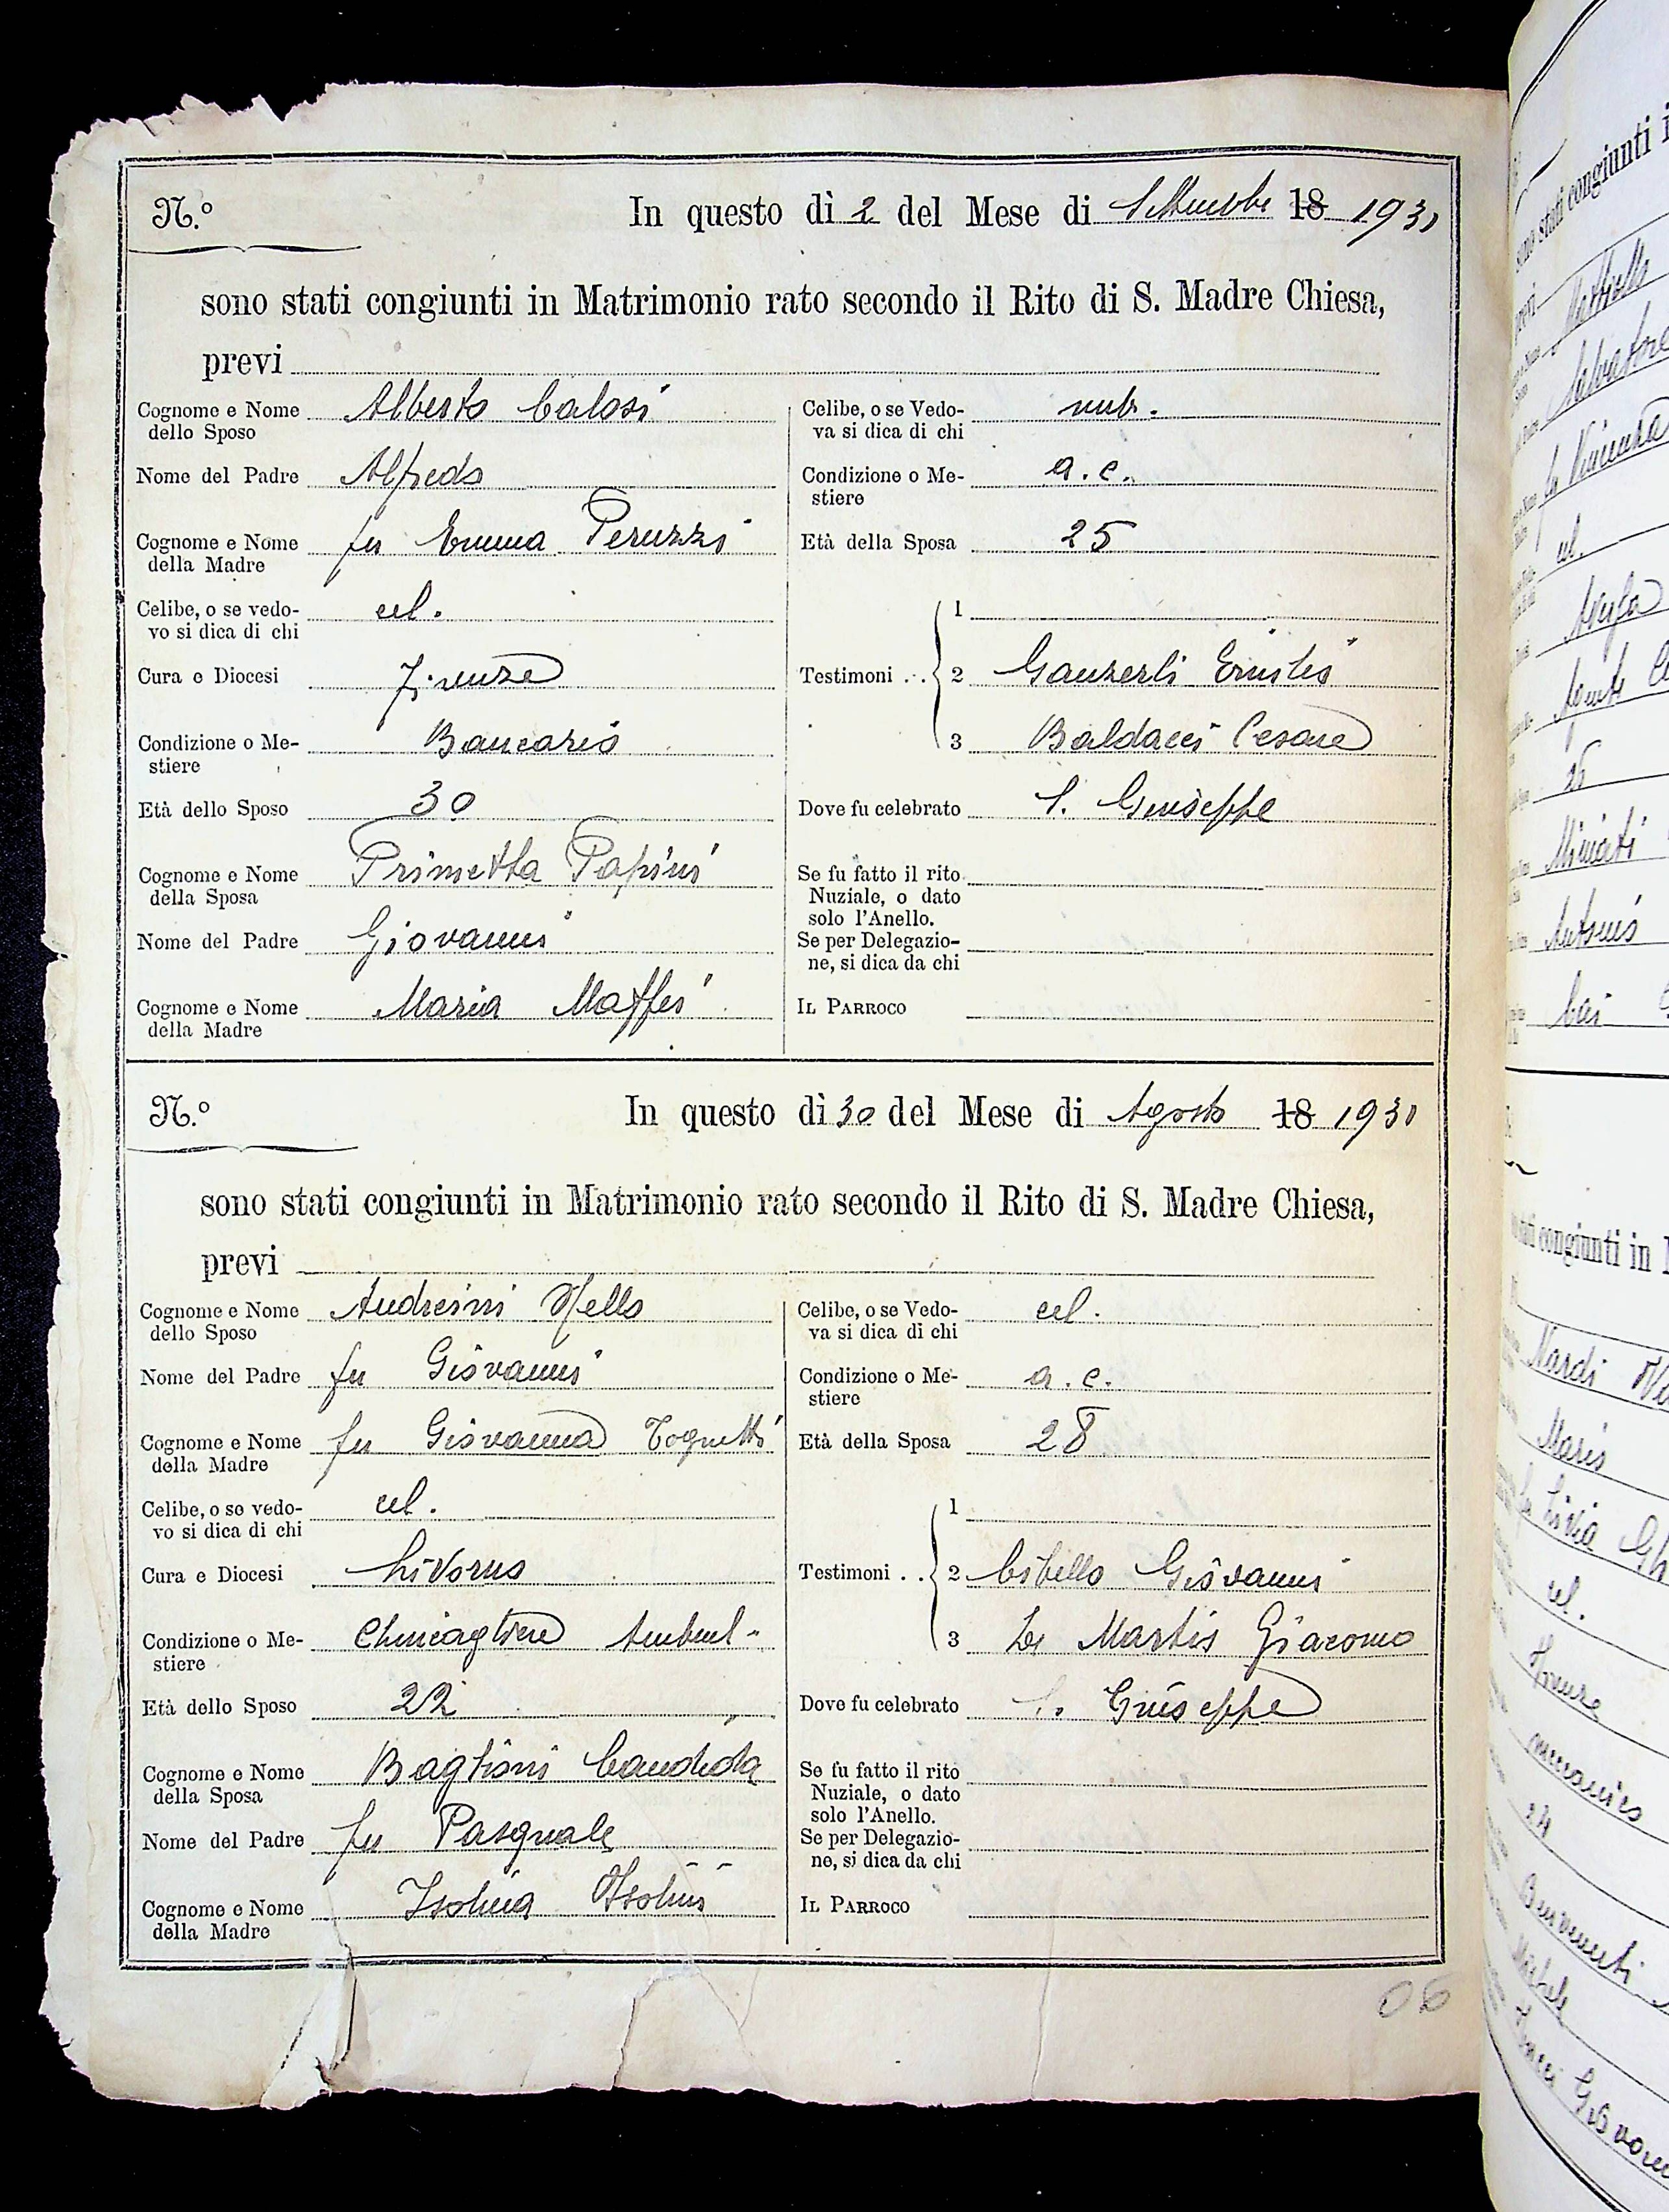 N.º In questo dì 2 del Mese di Settembre 18 1931
sono stati congiunti in Matrimonio rato secondo il Rito di S. Madre Chiesa,
previ
Cognome e Nome dello Sposo Alberto Calosi
Nome del Padre Alfredo
Cognome e Nome della Madre fu Emma Peruzzi
Celibe, o se vedo-
vo si dica di chi cel.
Cura e Diocesi Firenze
Condizione o Me-
stiere Bancario
Età dello Sposo 30
Cognome e Nome della Sposa Primetta Papini
Nome del Padre Giovanni
Cognome e Nome della Madre Maria Maffei
Celibe, o se Vedo-
va si dica di chi nub.
Condizione o Me-
stiere a.c.
Età della Sposa 25
Testimoni . . 1
2 Ganzerli
3 Baldacci Cesare
Dove fu celebrato S. Giuseppe
Se fu fatto il rito
Nuziale, o dato
solo l'Anello.
Se per Delegazio-
ne, si dica da chi
IL PARROCO
N.º In questo dì 30 del Mese di Agosto 18 1931
sono stati congiunti in Matrimonio rato secondo il Rito di S. Madre Chiesa,
previ
Cognome e Nome dello Sposo Andreini Nello
Nome del Padre fu Giovanni
Cognome e Nome della Madre fu Giovanna Tognetti
Celibe, o se vedo-
vo si dica di chi cel.
Cura e Diocesi Livorno
Condizione o Me-
stiere
Età dello Sposo 22
Cognome e Nome della Sposa Baglioni Candida
Nome del Padre fu Pasquale
Cognome e Nome della Madre Isolina
Celibe, o se Vedo-
va si dica di chi cel.
Condizione o Me-
stiere a.c.
Età della Sposa 28
Testimoni . . 1
2 Cibello Giovanni
3 De Martis Giacomo
Dove fu celebrato S. Giuseppe
Se fu fatto il rito
Nuziale, o dato
solo l'Anello.
Se per Delegazio-
ne, si dica da chi
IL PARROCO
06